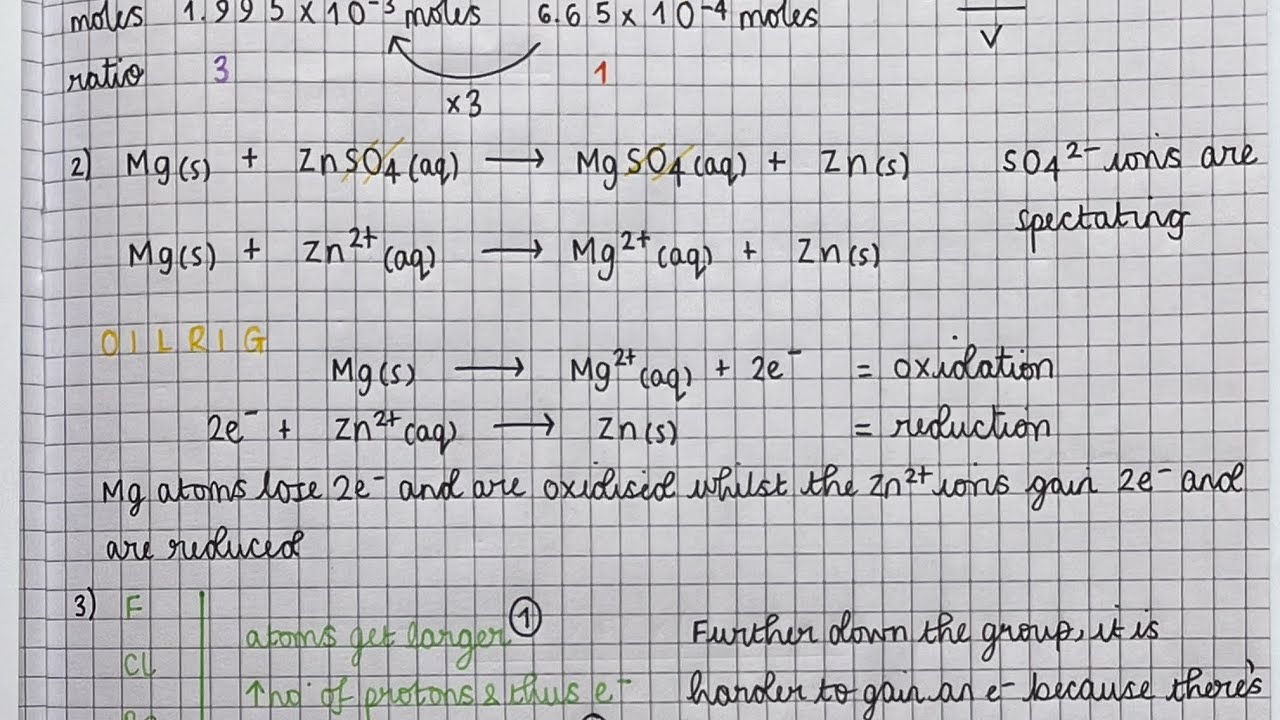 moles 1.995 x 10⁻³ moles 6.65 x 10⁻⁴ moles
V
ratio 3 1
x3
2) Mg(s) + ZnSO₄(aq) → MgSO₄(aq) + Zn(s) SO₄²⁻ ions are
spectating
Mg(s) + Zn²⁺(aq) → Mg²⁺(aq) + Zn(s)
OILRIG
Mg(s) → Mg²⁺(aq) + 2e⁻ = oxidation
2e⁻ + Zn²⁺(aq) → Zn(s) = reduction
Mg atoms lose 2e⁻ and are oxidised whilst the Zn²⁺ ions gain 2e⁻ and
are reduced
3) F
atoms get larger ① Further down the group, it is
Cl
↑no. of protons & thus e⁻ harder to gain an e⁻ because there's